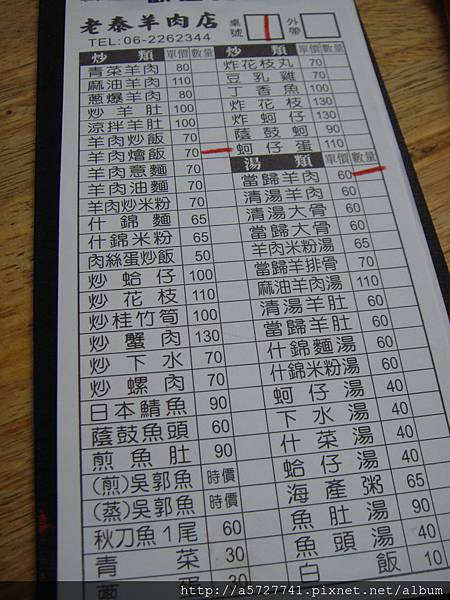 老泰羊肉店 桌號 外帶
TEL:06-2262344
炒類 單價 數量
青菜羊肉 80
麻油羊肉 110
蔥爆羊肉 80
炒羊肚 100
涼拌羊肚 100
羊肉炒飯 70
羊肉燴飯 70
羊肉意麵 70
羊肉油麵 70
羊肉炒米粉 70
什錦麵 65
什錦米粉 65
肉絲蛋炒飯 50
炒蛤仔 100
炒花枝 110
炒桂竹筍 100
炒蟹肉 130
炒下水 70
炒螺肉 70
日本鯖魚 90
蔭鼓魚頭 60
煎魚肚 90
(煎)吳郭魚 時價
(蒸)吳郭魚 時價
秋刀魚1尾 60
青菜 30
30
炒類 單價 數量
炸花枝丸 70
豆乳雞 70
丁香魚 100
炸花枝 130
炸蚵仔 130
蔭鼓蚵 90
蚵仔蛋 110
湯類 單價 數量
當歸羊肉 60
清湯羊肉 60
清湯大骨 60
當歸大骨
羊肉米粉湯
當歸羊排骨 70
麻油羊肉湯 110
清湯羊肚 60
當歸羊肚 60
什錦麵湯 60
什錦米粉湯 60
蚵仔湯 40
下水湯 40
什菜湯 40
蛤仔湯 40
海產粥 65
魚肚湯
魚頭湯 40
白飯 10
http://a5727741.pixnet.net/album